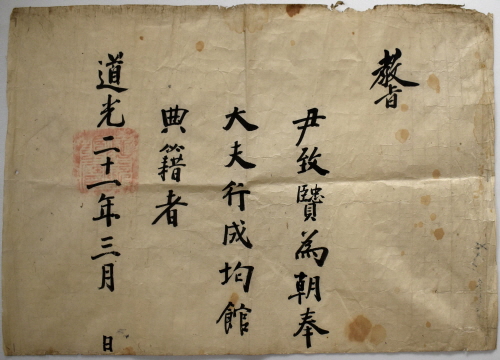 敎旨
尹致贒為朝奉
大夫行成均館
典籍者
道光二十一年三月 日